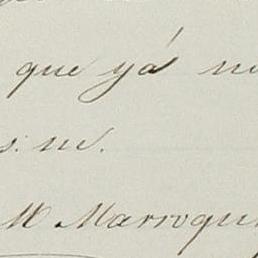 que yá no
s. m.
M Marroqu